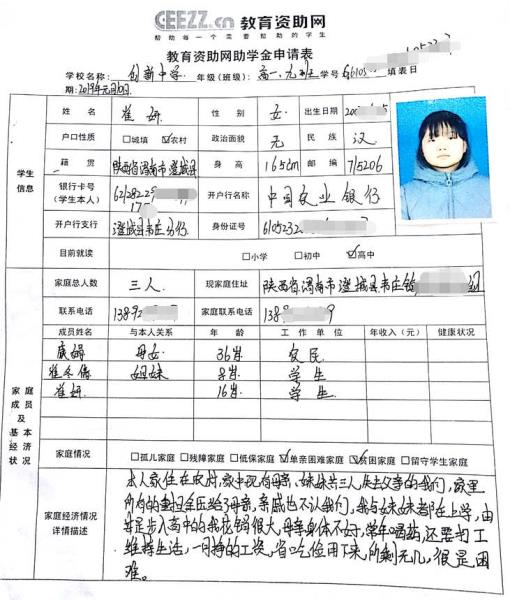 CEEZZ.cn 教育资助网
帮助每一个需要帮助的学生
教育资助网助学金申请表
学校名称: 创新中学 年级(班级): 高一.九班 学号 G6105 填表日
期: 2019年元月10日
学生信息
姓名 崔妍 性别 女 出生日期
户口性质 □城填 ☑农村 政治面貌 无 民族 汉
籍贯 陕西省渭南市澄城县 身高 165cm 邮编 715206
银行卡号 (学生本人) 开户行名称 中国农业银行
开户行支行 澄城县韦庄分行 身份证号
目前就读 □小学 □初中 ☑高中
家庭成员及基本经济状况
家庭总人数 三人 现家庭住址 陕西省渭南市澄城县韦庄镇 组
联系电话 家庭联系电话
成员姓名 与本人关系 年龄 工作单位 年收入(元) 健康状况
母女 36岁 农民
姐妹 8岁 学生
崔妍 16岁 学生
家庭情况 □孤儿家庭 □残障家庭 □低保家庭 ☑单亲困难家庭 ☑贫困家庭 □留守学生家庭
家庭经济情况详情描述
本人家住在农村,家中现有母亲、妹妹共三人,失去父亲的我们,家里
所有的重担全压给了母亲,亲戚也不认我们,我与妹妹都在上学,由
其是步入高中的我花销很大,母亲身体不好,常年喝药,还要打工
维持生活,一月挣的工资,省吃俭用下来,所剩无几,很是困
难。